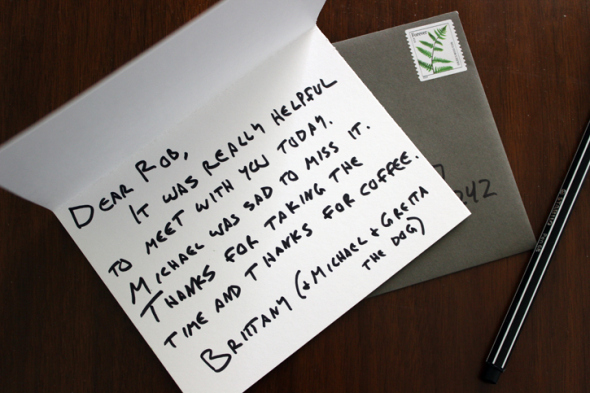 DEAR ROB,
IT WAS REALLY HELPFUL
TO MEET WITH YOU TODAY.
MICHAEL WAS SAD TO MISS IT.
THANKS FOR TAKING THE
TIME AND THANKS FOR COFFEE.
BRITTANY (+ MICHAEL + GRETTA
THE DOG)